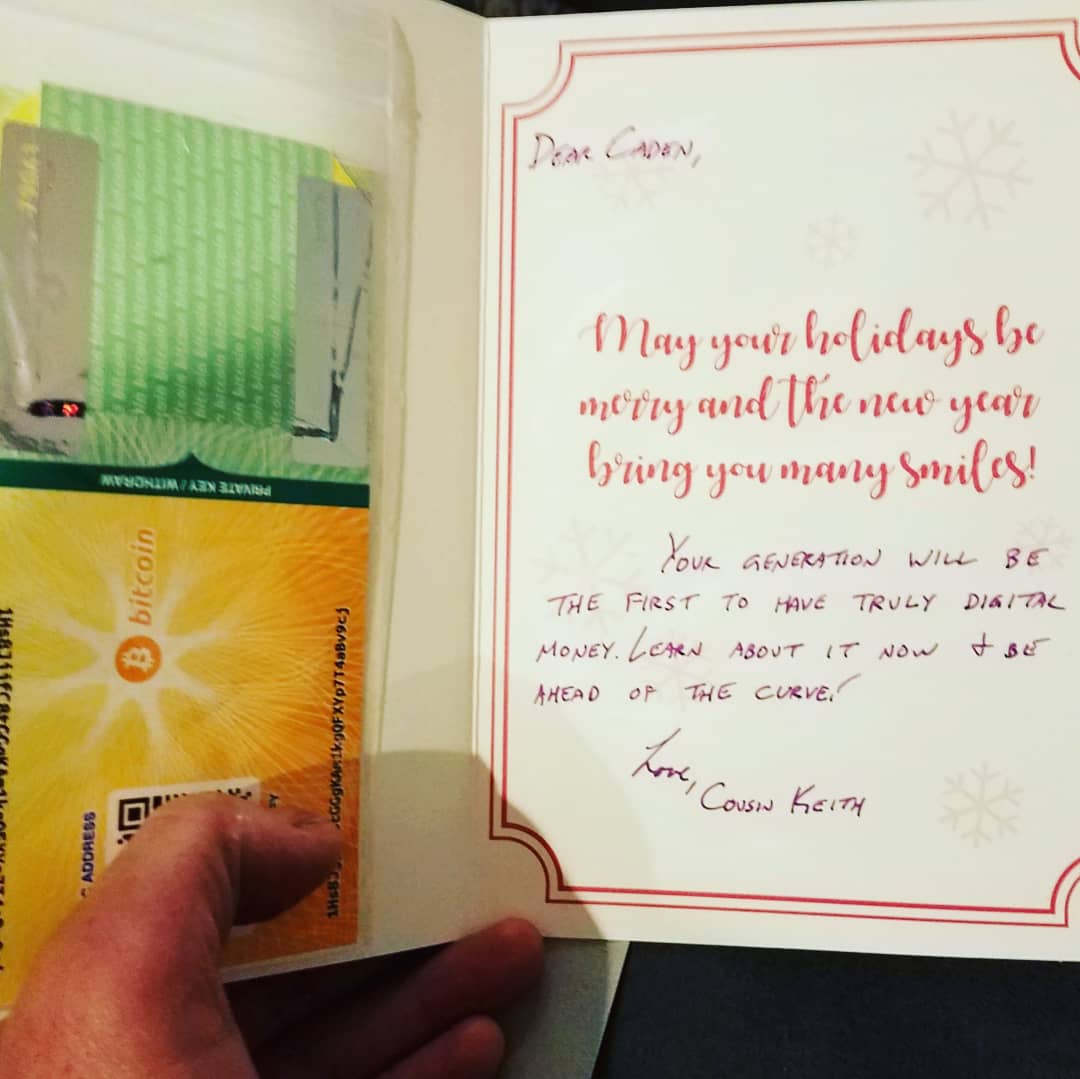 PRIVATE KEY / WITHDRAW
bitcoin
ADDRESS
Dear Caden,
May your holidays be
merry and the new year
bring you many smiles!
Your generation will be
the first to have truly digital
money. Learn about it now & be
ahead of the curve!
Love,
Cousin Keith